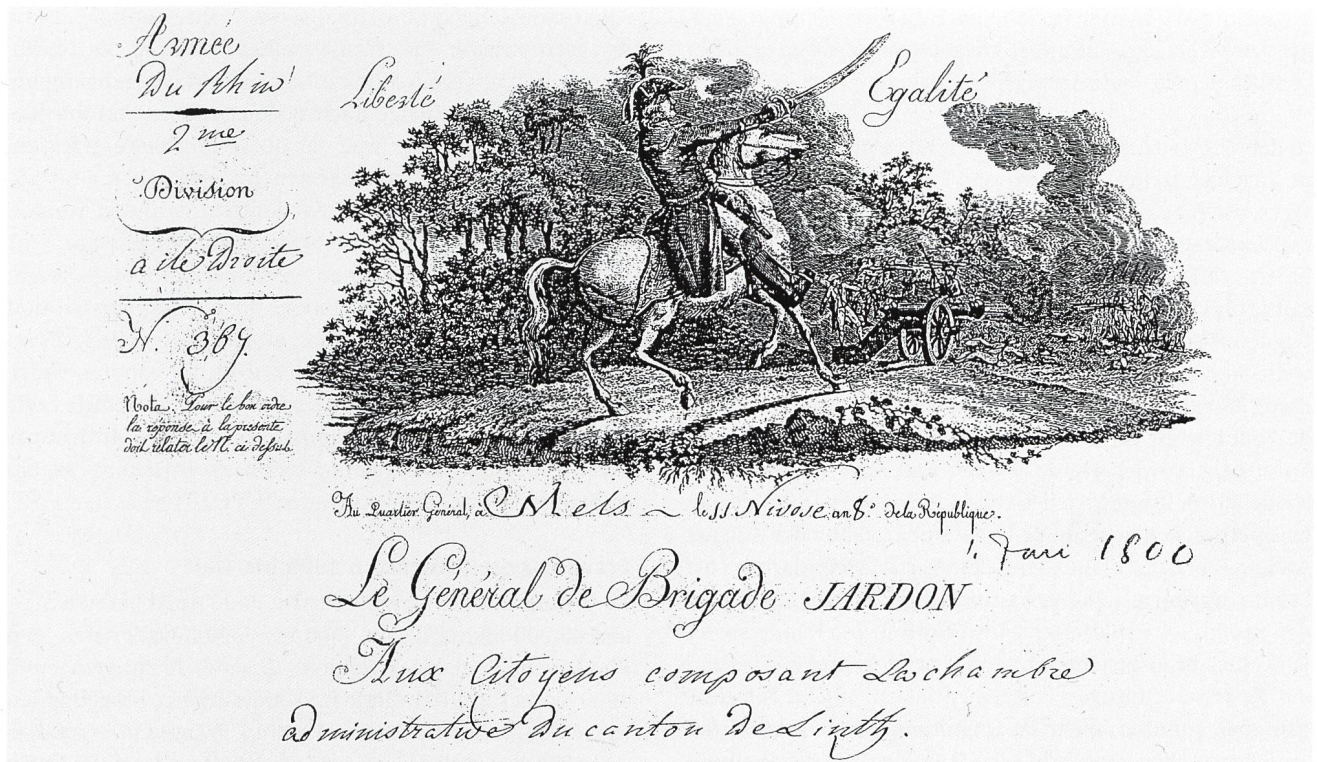 Armée
Du Rhin
2me
Division
aile Droite
N. 387.
Nota. Pour le bon ordre
la réponse à la presente
doit relater le N. ci dessus.
Liberté
Egalité
Au Quartier Général, à Mels le 11 Nivose an 8.e de la République.
1. Jan 1800
Le Général de Brigade JARDON
Aux Citoyens composant La chambre
administrative Du canton de Linth.